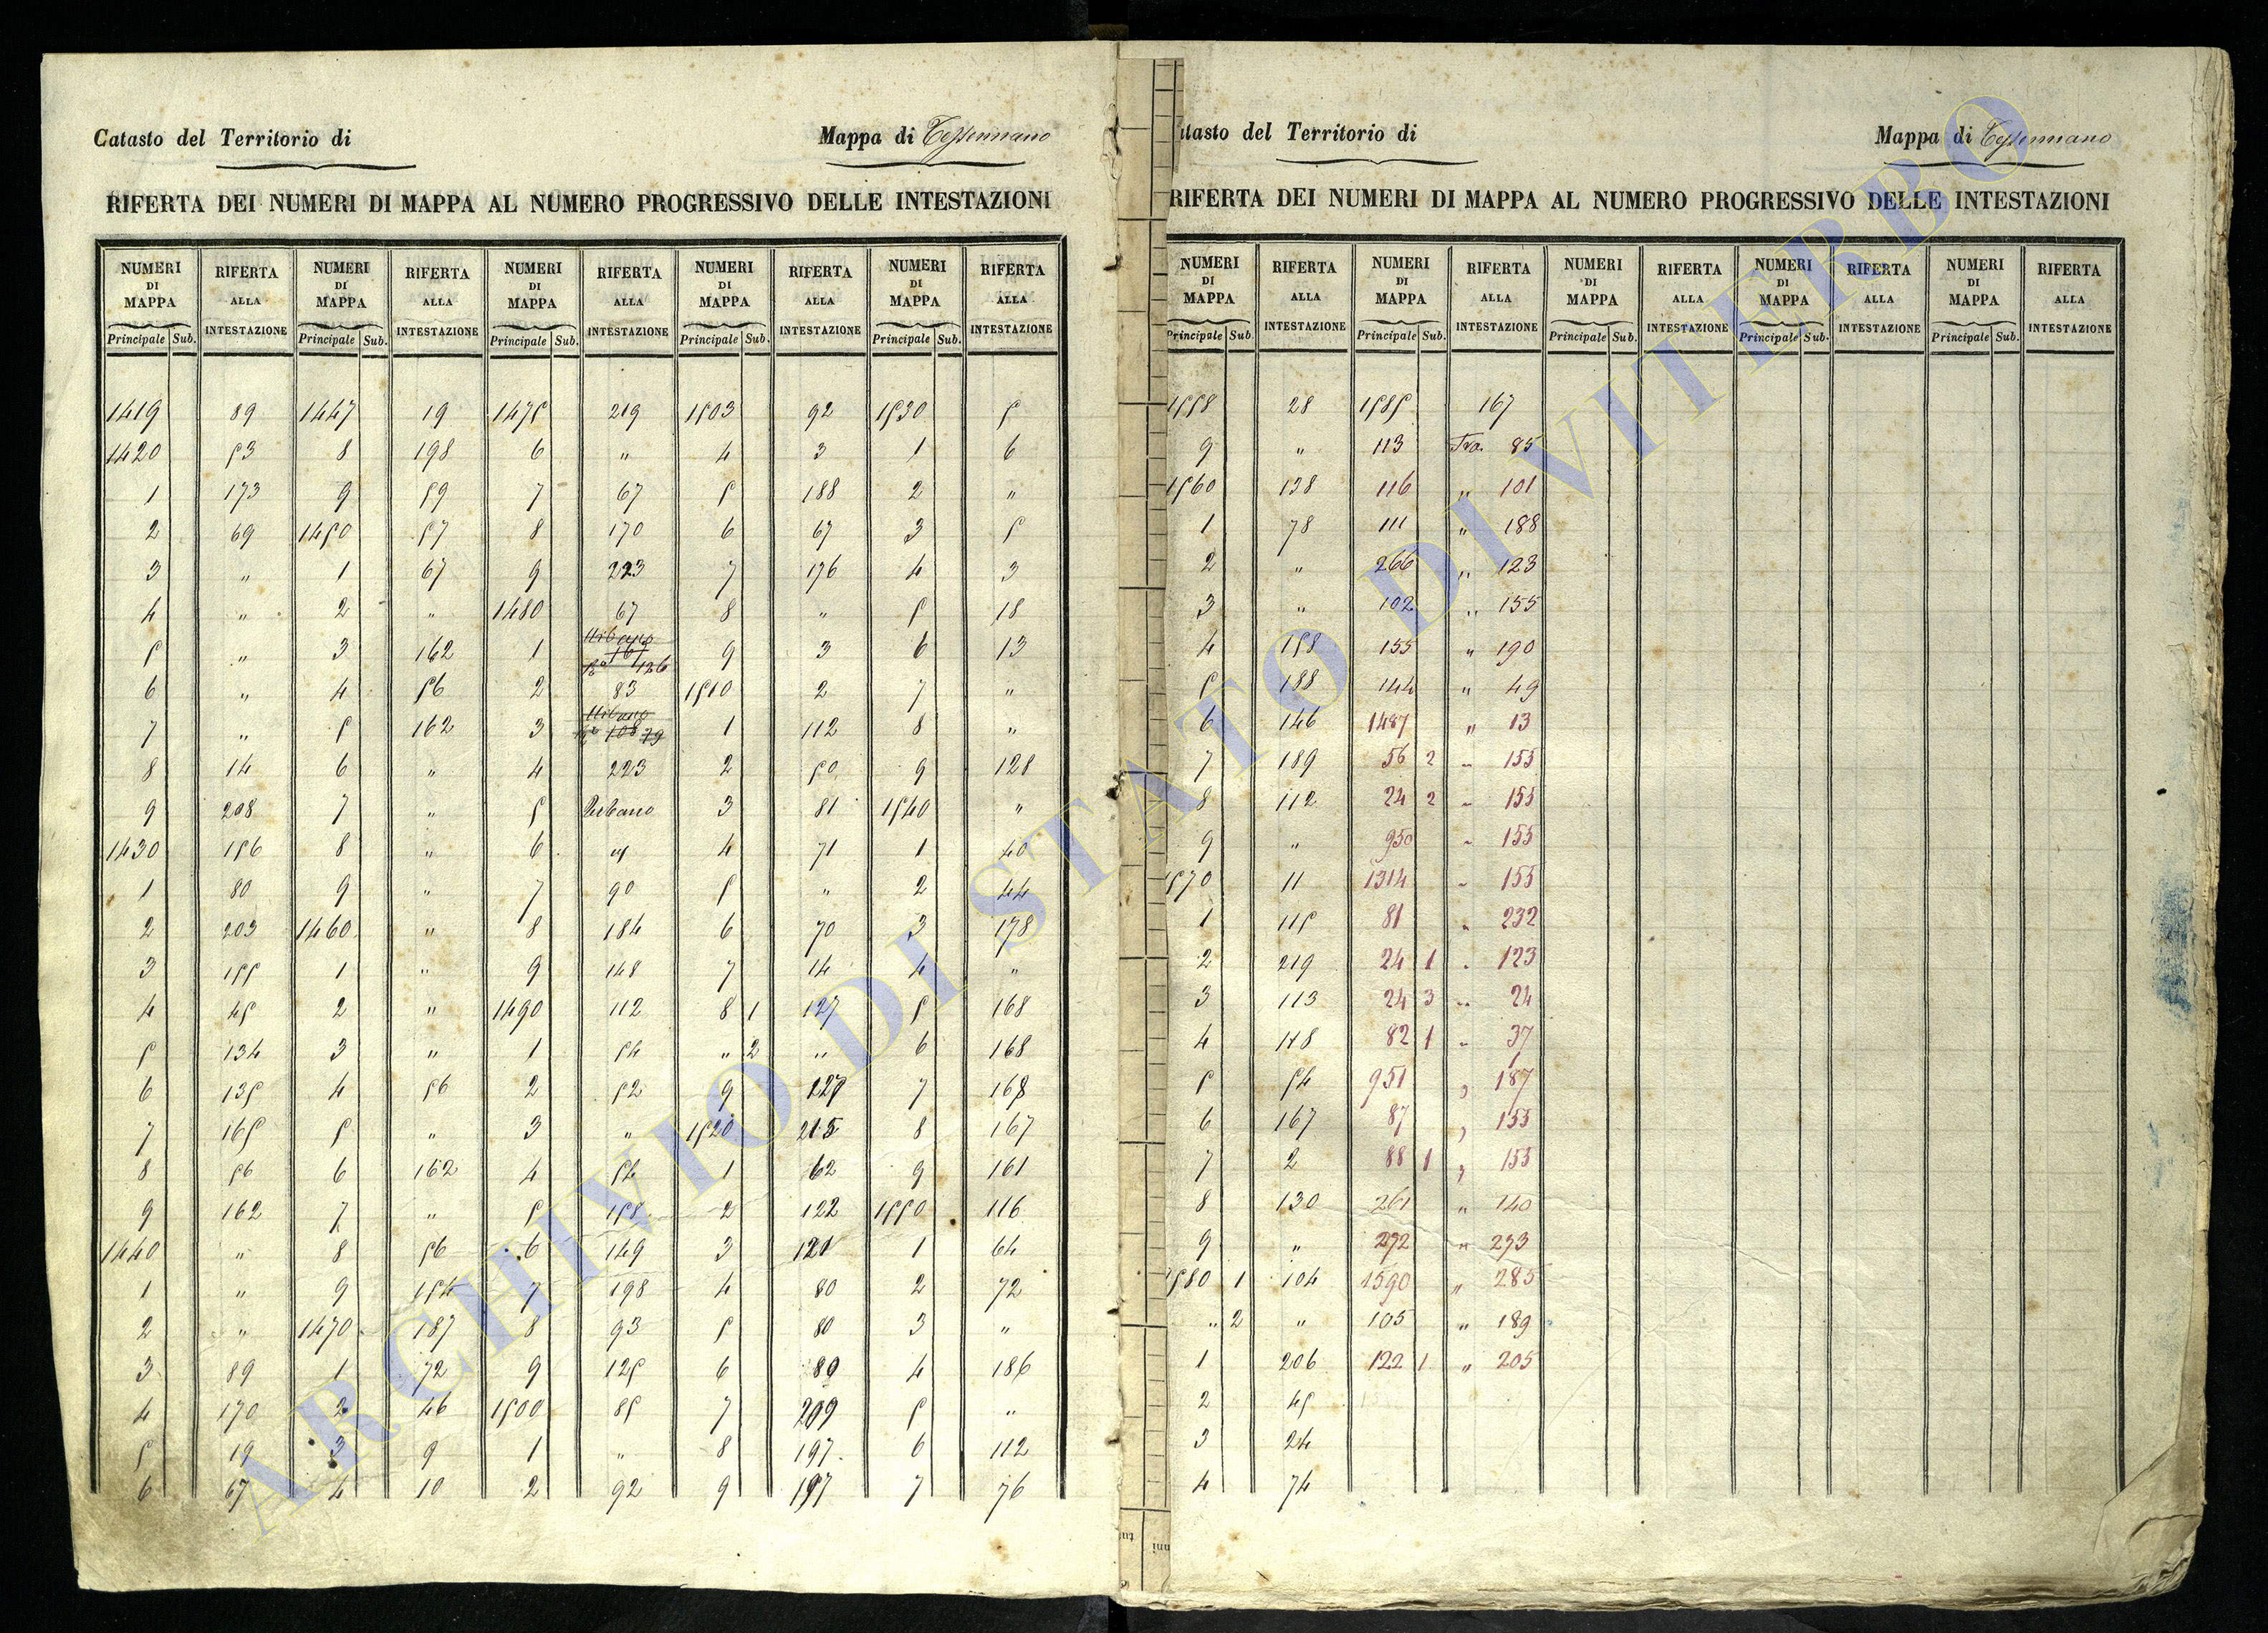 Catasto del Territorio di
Mappa di Tessennano
RIFERTA DEI NUMERI DI MAPPA AL NUMERO PROGRESSIVO DELLE INTESTAZIONI
NUMERI DI MAPPA RIFERTA ALLA INTESTAZIONE NUMERI DI MAPPA RIFERTA ALLA INTESTAZIONE NUMERI DI MAPPA RIFERTA ALLA INTESTAZIONE NUMERI DI MAPPA RIFERTA ALLA INTESTAZIONE NUMERI DI MAPPA RIFERTA ALLA INTESTAZIONE
Principale Sub. Principale Sub. Principale Sub. Principale Sub. Principale Sub.
1419 89 1447 19 1475 219 1503 92 1530 5
1420 53 8 198 6 " 4 3 1 6
1 173 9 59 7 67 5 188 2 "
2 69 1450 57 8 170 6 67 3 5
3 " 1 67 9 223 7 176 4 3
4 " 2 " 1480 67 8 " 5 18
5 " 3 162 1 Urbano 167 126 9 3 6 13
6 " 4 56 2 83 1510 2 7 "
7 " 5 162 3 Urbano 108 79 1 112 8 "
8 14 6 " 4 223 2 50 9 128
9 208 7 " 5 Urbano 3 81 1540 "
1430 156 8 " 6 4 71 1 40
1 80 9 " 7 90 5 " 2 44
2 203 1460 " 8 184 6 70 3 178
3 155 1 " 9 148 7 14 4 "
4 45 2 " 1490 112 8 1 127 5 168
5 134 3 " 1 54 " 2 " 6 168
6 135 4 56 2 52 9 127 7 168
7 165 5 " 3 " 1520 215 8 167
8 56 6 162 4 54 1 62 9 161
9 162 7 " 5 158 2 122 1550 116
1440 " 8 56 6 149 3 120 1 64
1 " 9 154 7 198 4 80 2 72
2 " 1470 187 8 93 5 80 3 "
3 89 1 72 9 125 6 80 4 186
4 170 2 46 1500 85 7 209 5 "
5 19 3 9 1 " 8 197 6 112
6 67 4 10 2 92 9 197 7 76
tasto del Territorio di
Mappa di Tessennano
RIFERTA DEI NUMERI DI MAPPA AL NUMERO PROGRESSIVO DELLE INTESTAZIONI
NUMERI DI MAPPA RIFERTA ALLA INTESTAZIONE NUMERI DI MAPPA RIFERTA ALLA INTESTAZIONE NUMERI DI MAPPA RIFERTA ALLA INTESTAZIONE NUMERI DI MAPPA RIFERTA ALLA INTESTAZIONE NUMERI DI MAPPA RIFERTA ALLA INTESTAZIONE
Principale Sub. Principale Sub. Principale Sub. Principale Sub. Principale Sub.
1558 28 1585 167
9 " 113 Fra. 85
1560 138 116 " 101
1 78 111 " 188
2 " 266 " 123
3 " 102 " 155
4 158 155 " 190
5 188 144 " 49
6 146 1487 " 13
7 189 56 2 " 155
8 112 24 2 " 155
9 " 950 " 155
1570 11 1314 " 155
1 115 81 " 232
2 219 24 1 " 123
3 113 24 3 " 24
4 82 1 " 37
5 54 951 " 187
6 167 87 " 155
7 2 88 1 " 155
8 130 261 " 140
9 " 272 " 273
1580 1 104 1590 " 285
" 2 " 105 " 189
1 206 122 1 " 205
2 45
3 24
4 74
ARCHIVIO DI STATO DI VITERBO